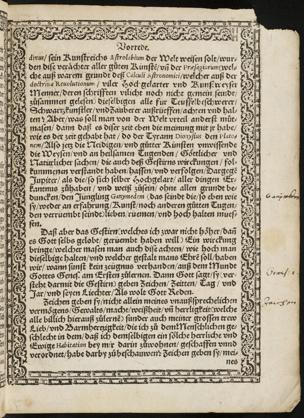 Vorrede.
dinus/ sein Kunstreichs Astrolabium der Welt weisen solt/ wur-
den dise verächter aller güten Künst/ vñ der Præsagiorum/ wel-
che auß warem grunde deß Calculi Astronomici/ welcher auß der
doctrina Reuolutionum/ viler Hochgelarter und Kunstreychs
Menner/ deren schrifften vileicht noch nicht gemein seindt
zusammen gelesen/ dieselbigen alle für Teuffelsbeschwerer
Schwartzkünstler/ und Zauberer außrüffen/ achten und hal-
ten? Aber/ was soll man von der Welt vrteil anderst müt-
massen/ dann daß es diser zeit eben die meinung mit jr habe/
wie es der zeit gehabt hat/ do der Tyrann Dionysius den Plato
nem/ Also jeg die Neidigen/ und güter Künsten unwissende
die Weysen/ und an heilsamen Tugenden/ Göttlicher und
Natürlicher sachen/ die auch deß Gestirns wirckungen/ sol-
kummenen verstandt haben/ hassen/ und verfolgen/ Dargegē
Jupiter/ als die/ so sich selber Hochgelart/ aller dingen Er-
kantnus zühaben/ und weiß züsein/ ohne allen grundt be-
duncken/ den Jungling Ganymedem/ das seind die/ so eben wie
sy/ weder an erfahrung/ Kunst/ noch anderen güten Tugen-
den verrümbt seind/ lieben/ rüemen/ und hoch halten mües-
sen.
Daß aber das Gestirn/ welches ich zwar nicht höher/ dañ
es Gott selbs gelobt/ gerüembt haben will/ Ein wirckung
bringe/ welcher masen man auch diß achten/ wie hoch man
dieselbige halten/ und welcher gestalt mans Ehrē soll/ haben
wir/ wann sunst kein zeugnus verhanden/ auß dem Mundt
Gottes Genes. am Ersten zülernen. Dann Gott sagt sy/ ver-
steht darmit die Gestirn/ geben Zeichen/ Zeitten/ Tag/ und
Jar/ und seyen Liechter/ Als wolt Gott Reden.
Zeichen geben sy/ nicht allein meines vnaußsprechelichen
vermögens/ Gewalts/ macht/ weißheit/ vñ herrligkeit/ welche
alle billich hierauß zülernē/ sunder auch meiner grossen trew
Lieb/ und Barmhertzigkeit/ die ich zü dem Menschlichen ge-
schlecht in dem/ daß ich demselbigen ein solche herrliche und
Ewige Habitation bey mir darin züwohnen/ geschaffen unnd
verordnet/ habe darby zübeschauwen/ Zeichen geben sy/ mei-
nes